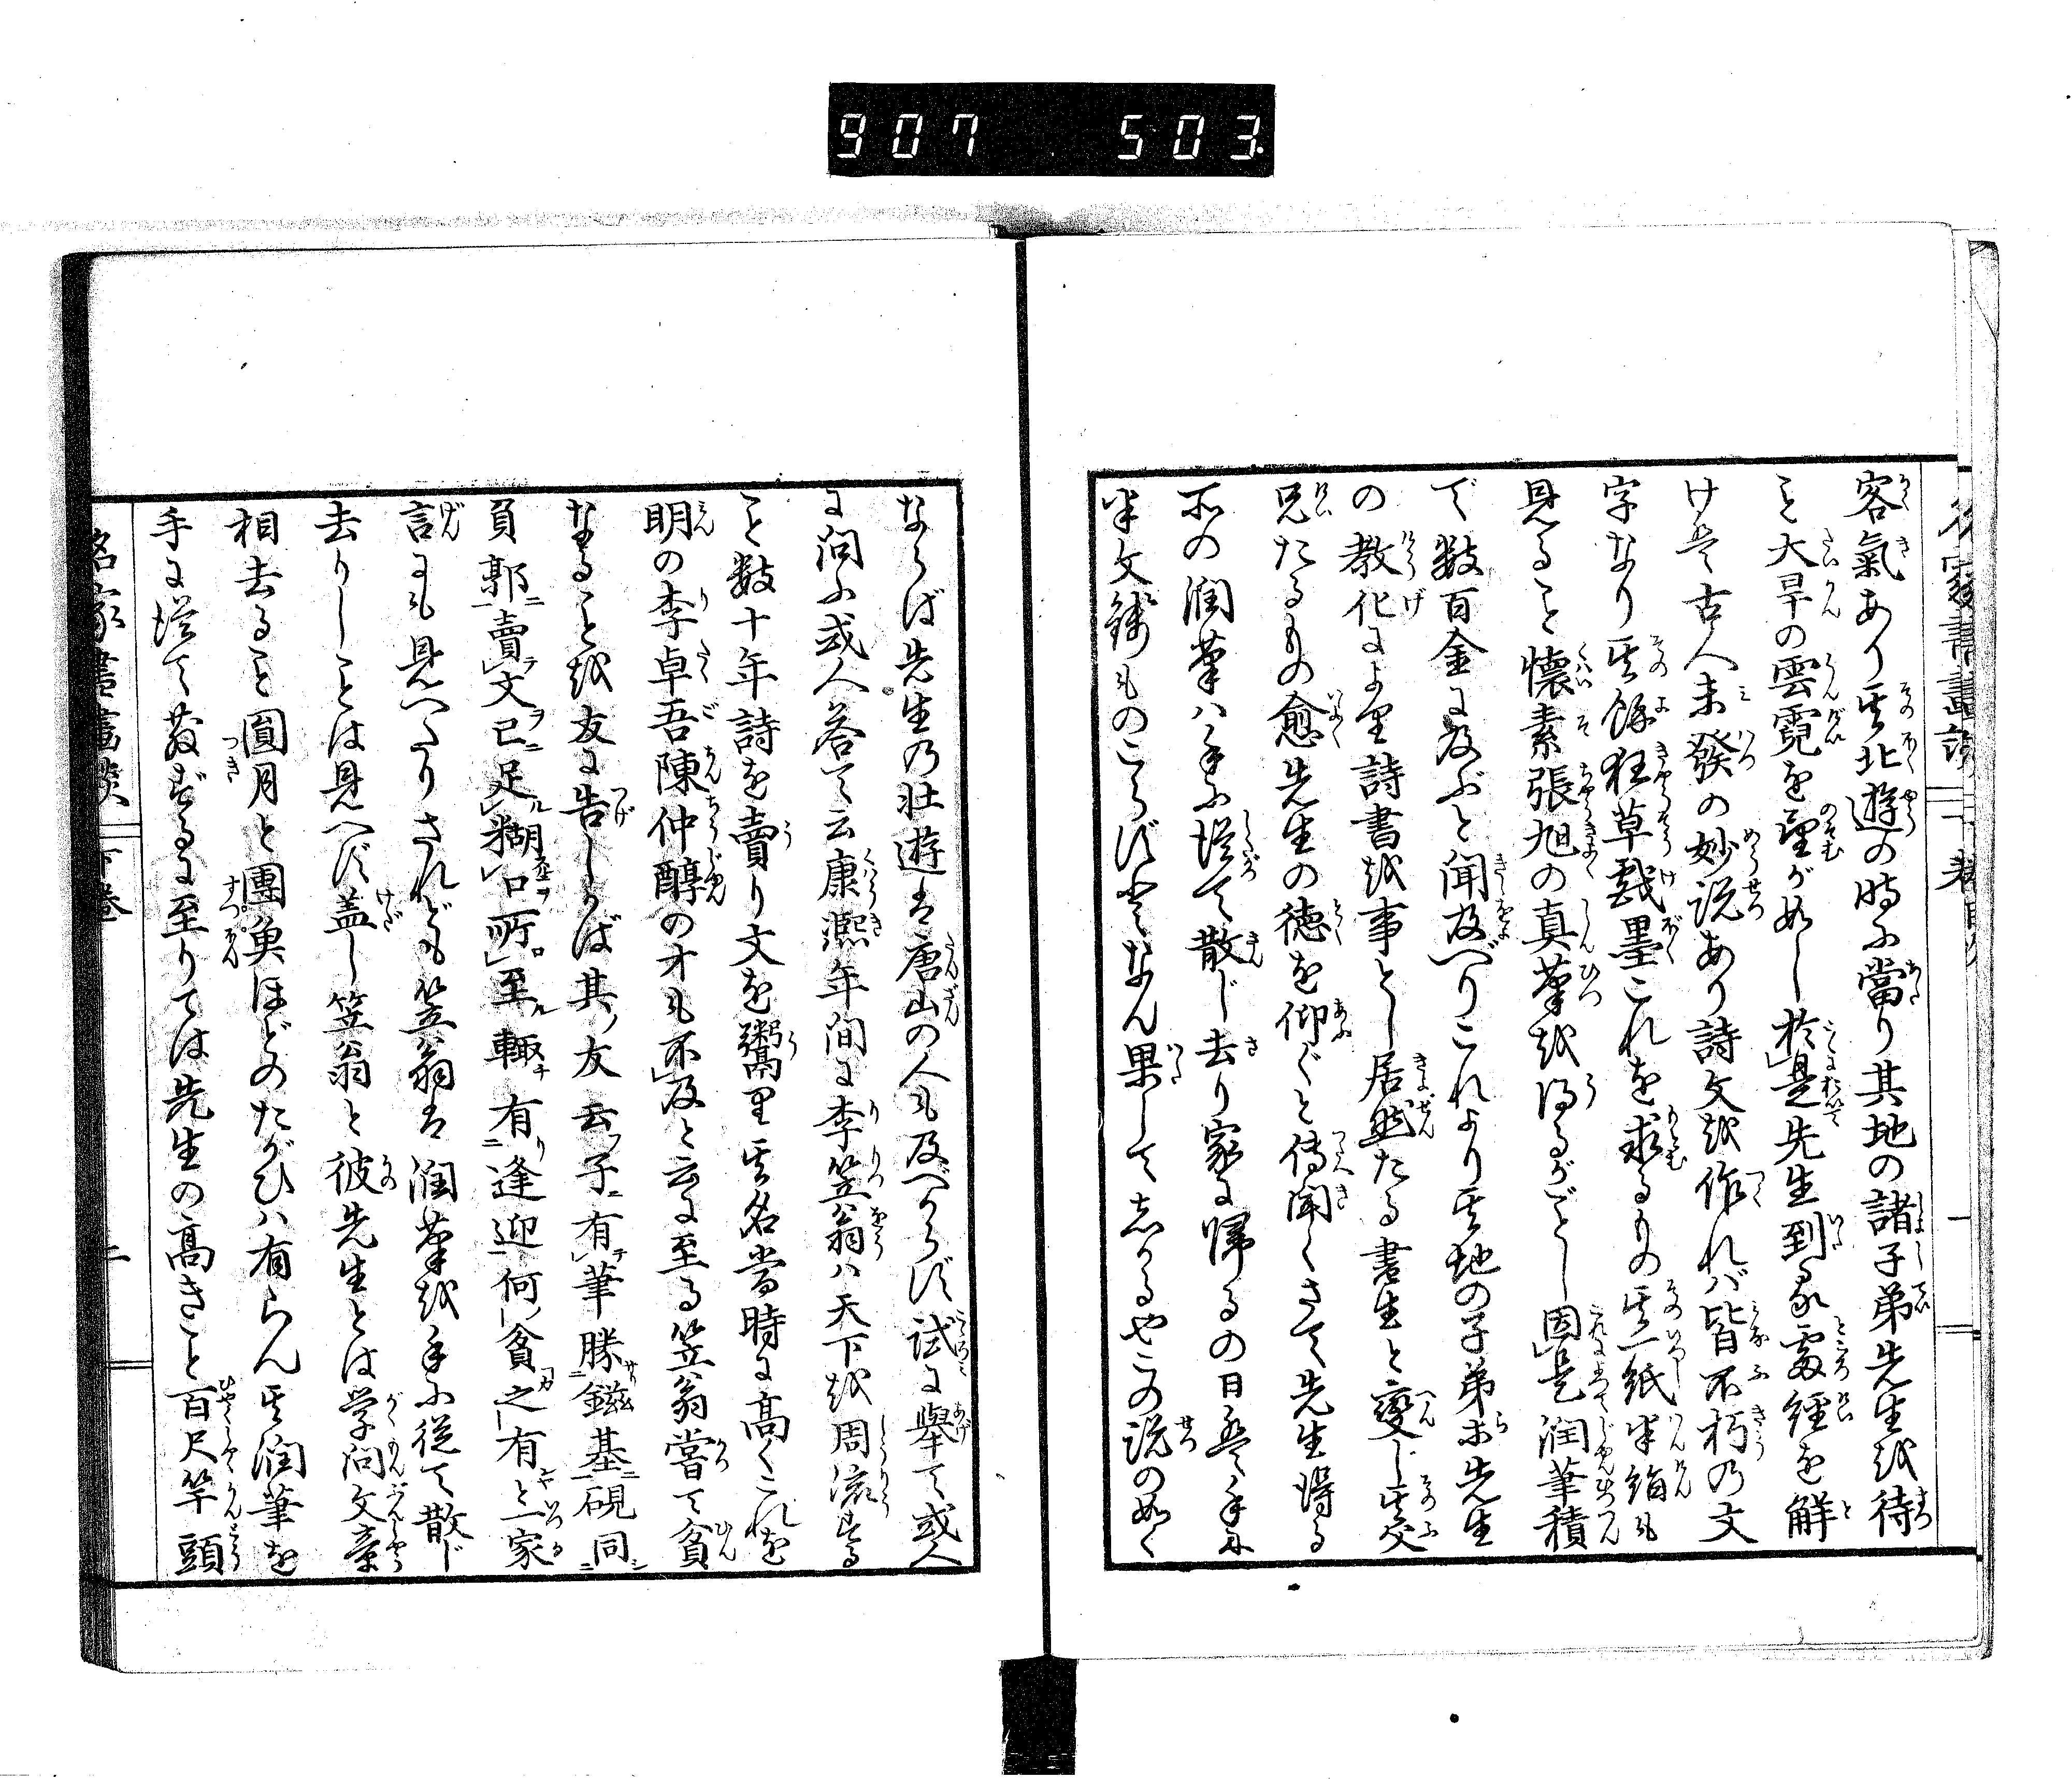 907 503
客氣あり其北遊の時に當り其地の諸子弟先生を待
こと大旱の雲霓を望が如し於是先生到る處經を解
けば古人未發の妙説あり詩文を作れバ皆不朽の文
字なり其餘狂草戯墨これを求るもの其一紙半絹も
見ること懐素張旭の真筆を得るがごとし因是潤筆積
で数百金に及ぶと聞及べりこれより其地の子弟ホ先生
の教化により詩書を事とし居然たる書生と變じ其父
兄たるもの愈先生の徳を仰ぐと傳聞くさて先生得る
所の潤筆ハ手に従て散じ去り家に帰るの日
半文銭ものこらずとなん果して志かるやこの説の如く
ならば先生の壮遊は唐山の人も及べからず試に舉て或人
に問ふ或人答て云康熙年間に李笠翁ハ天下を周流する
こと数十年詩を賣り文を鬻り其名當時に高くこれを
明の李卓吾陳仲醇の才も不及と云に至る笠翁嘗て貧
なることを友に告しかば其ノ友云フ子有筆勝鎡基硯同
負郭賣文已足糊口所至輙有逢迎何貧之有と一家
言にも見へたりされども笠翁は潤筆を手に従て散じ
去りしことは見へず盖し笠翁と彼先生とは学問文章
相去ること圓月と團魚ほどのたがひハ有らん其潤筆を
手に従て散ずるに至りては先生の高きこと百尺竿頭
名家書畫談 下巻 二